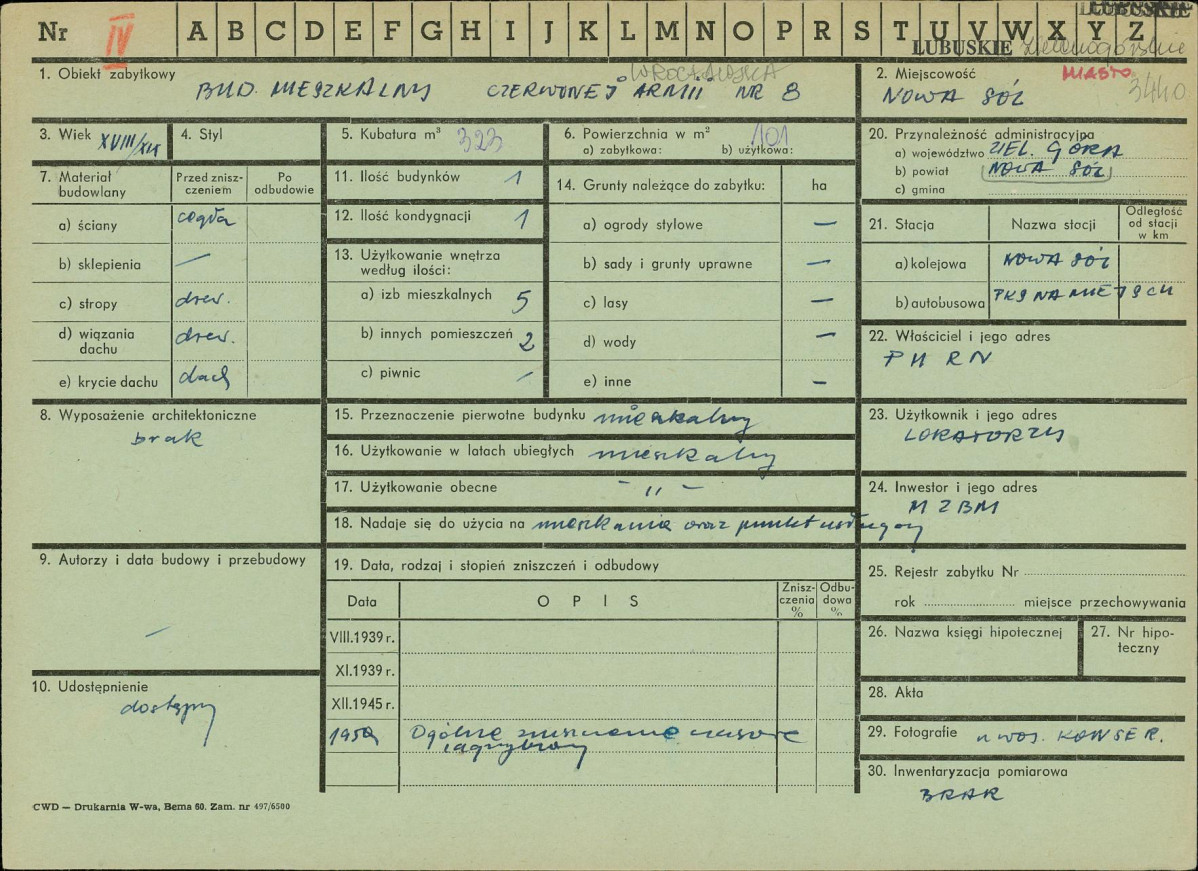 Nr IV A B C D E F G H I J K L M N O P R S T U V W X Y Z
LUBUSKIE
LUBUSKIE Zielonogórskie
1. Obiekt zabytkowy WROCŁAWSKA
BUD. MIESZKALNY CZERWONEJ ARMII NR 8
2. Miejscowość MIASTO 3440
NOWA SÓL
3. Wiek XVIII/XIX
4. Styl
5. Kubatura m³ 323
6. Powierzchnia w m² 101
a) zabytkowa: b) użytkowa:
20. Przynależność administracyjna
a) województwo ZIEL. GÓRA
b) powiat NOWA SÓL
c) gmina
7. Materiał budowlany
Przed znisz-
czeniem
Po
odbudowie
a) ściany cegła
b) sklepienia —
c) stropy drew.
d) wiązania
dachu drew.
e) krycie dachu dach
11. Ilość budynków 1
12. Ilość kondygnacji 1
13. Użytkowanie wnętrza
według ilości:
a) izb mieszkalnych 5
b) innych pomieszczeń 2
c) piwnic –
14. Grunty należące do zabytku: ha
a) ogrody stylowe —
b) sady i grunty uprawne —
c) lasy —
d) wody —
e) inne —
21. Stacja Nazwa stacji
Odległość
od stacji
w km
a) kolejowa NOWA SÓL
b) autobusowa PKS NA MIEJSCU
22. Właściciel i jego adres
PMRN
8. Wyposażenie architektoniczne
brak
15. Przeznaczenie pierwotne budynku mieszkalny
16. Użytkowanie w latach ubiegłych mieszkalny
17. Użytkowanie obecne – „ –
18. Nadaje się do użycia na mieszkanie oraz punkt usługowy
23. Użytkownik i jego adres
LOKATORZY
24. Inwestor i jego adres
MZBM
9. Autorzy i data budowy i przebudowy
—
19. Data, rodzaj i stopień zniszczeń i odbudowy
Data OPIS
Znisz-
czenia
%
Odbu-
dowa
%
VIII.1939 r.
XI.1939 r.
XII.1945 r.
1959 Ogólne zniszczenie
zagrzybiony
25. Rejestr zabytku Nr
rok miejsce przechowywania
26. Nazwa księgi hipotecznej
27. Nr hipo-
teczny
10. Udostępnienie
dostępny
28. Akta
29. Fotografie u woj. KONSER.
30. Inwentaryzacja pomiarowa
BRAK
CWD — Drukarnia W-wa, Bema 60. Zam. nr 497/6500